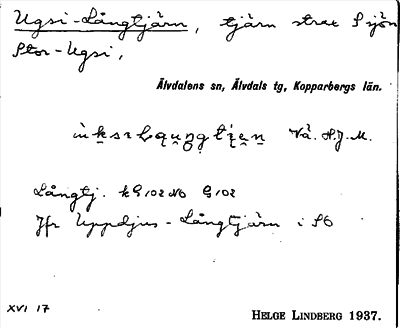 Ugsi-Långtjärn, tjärn strax S sjön
Stor-Ugsi,
Älvdalens sn, Älvdals tg, Kopparbergs län.
Vå. H.J.M.
Långtj. kG102 NO G102
Jfr Uppdjus-Långtjärn i SO
XVI 17
HELGE LINDBERG 1937.